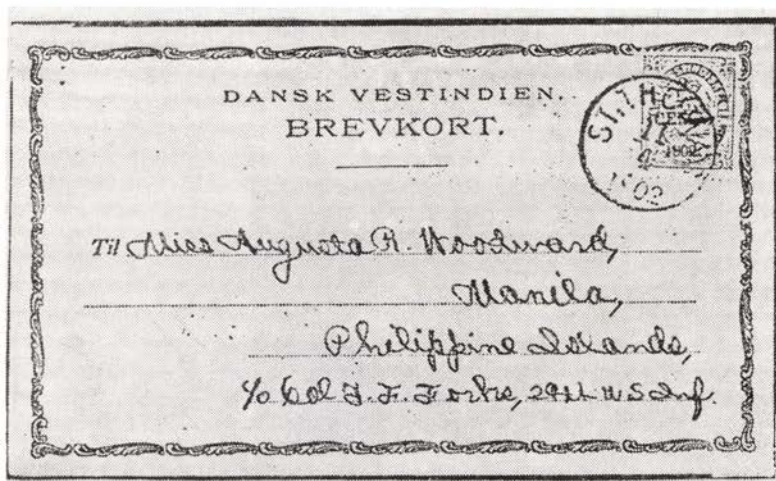 DANSK VESTINDIEN.
BREVKORT.
ST. THOMAS
17
4
1902
CENT
1902
Til Miss Augusta R. Woodward,
Manila,
Philippine Islands,
c/o Col. F. F. 29th U S Inf.